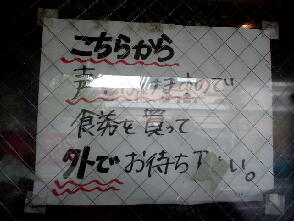 こちらから
声をかけますのでい
食券を買って
外でお待ち下さい。